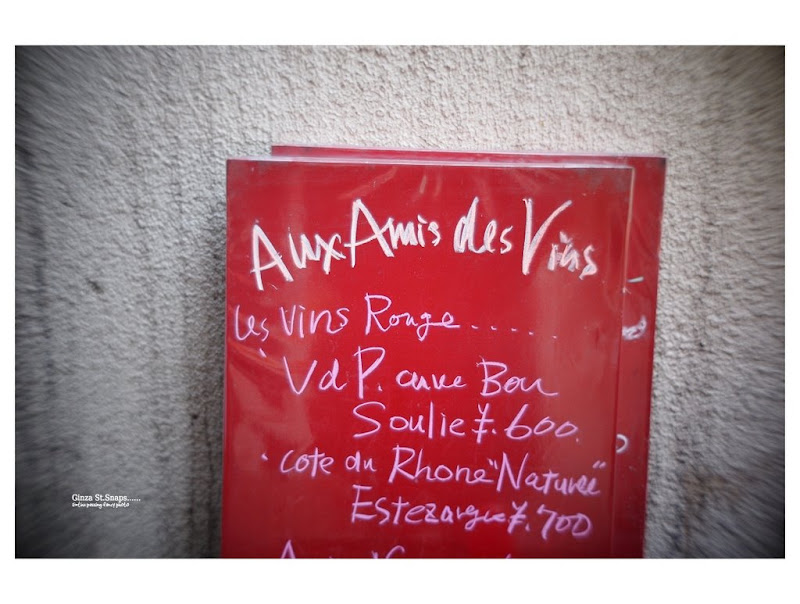 Aux Amis des Vins
Les Vins Rouge.....
VdP. cuve Bou
Soulie ¥.600.
・cote du Rhone "Naturee"
Estezargue ¥.700
Ginza St.Snaps......